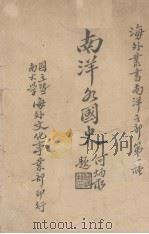 海外叢書南洋之部第一種
南洋各國史
何炳松題
國立暨
南大學
海外文化事業部印行